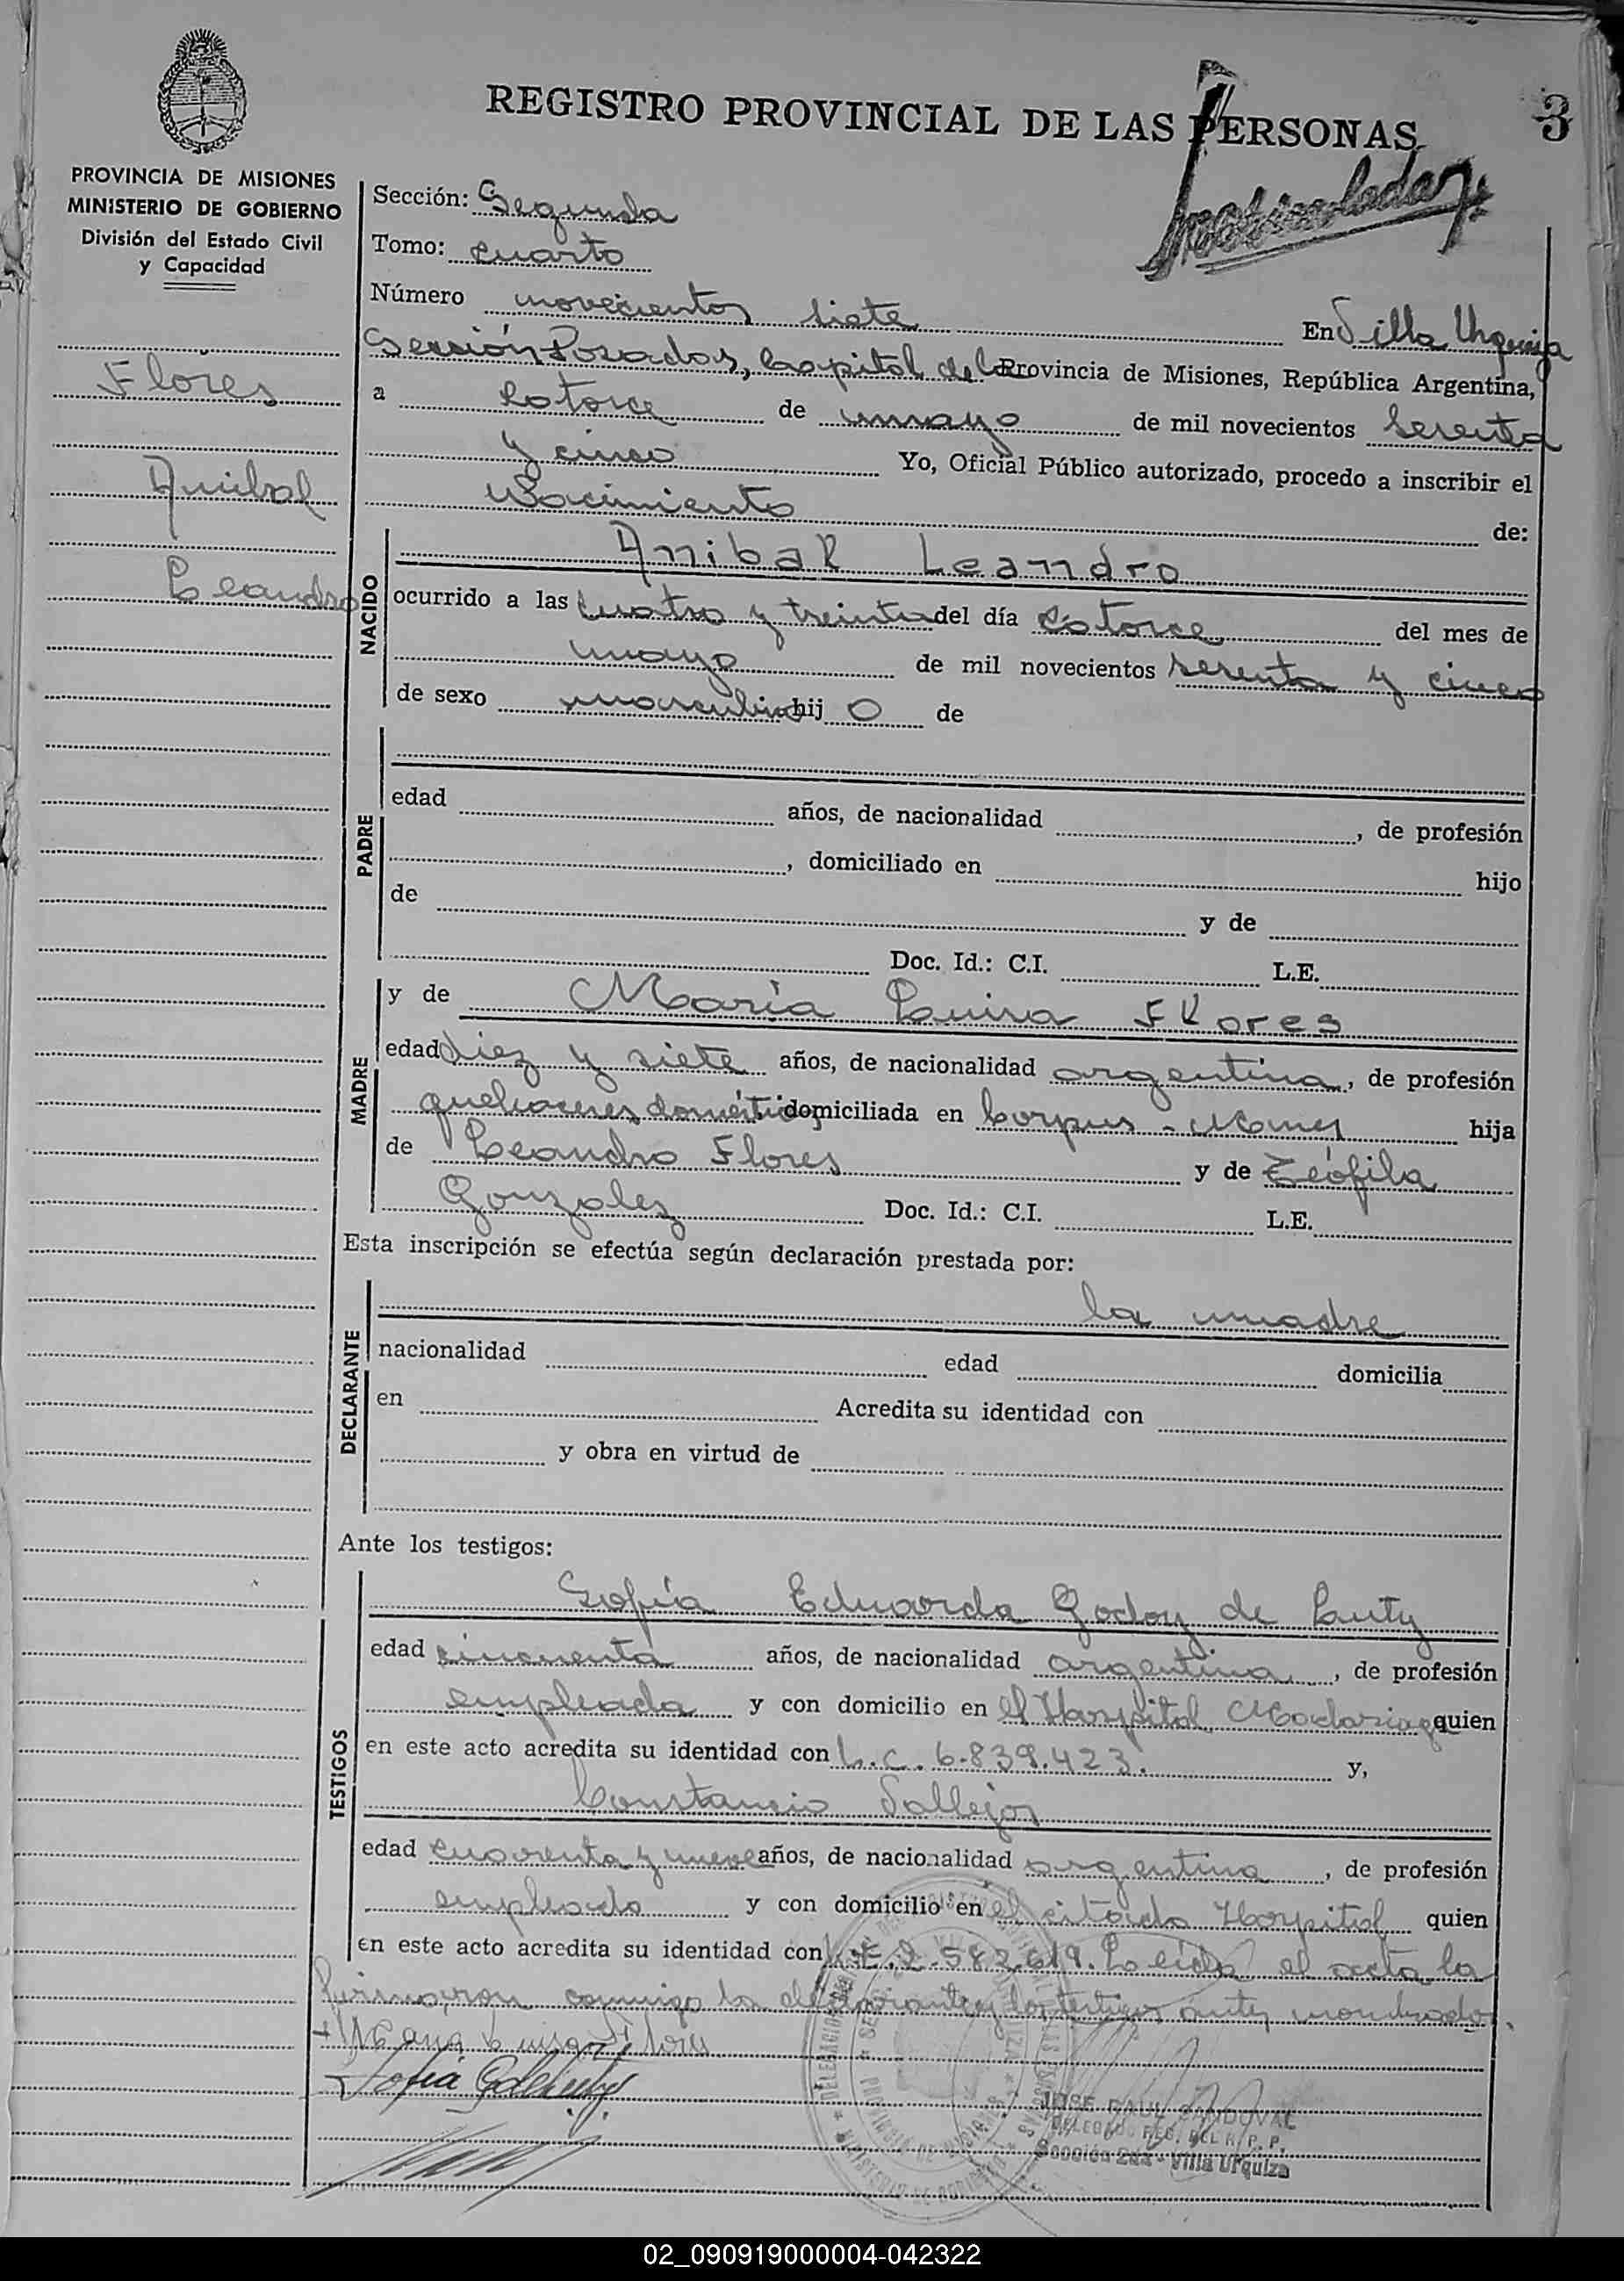 REGISTRO PROVINCIAL DE LAS PERSONAS
3
PROVINCIA DE MISIONES
MINISTERIO DE GOBIERNO
División del Estado Civil
y Capacidad
Flores
Anibal
Leandro
Sección: Segunda
Tomo: cuarto
Número novecientos siete En Villa Urquiza
Sección Posadas, Capital de la Provincia de Misiones, República Argentina,
a catorce de mayo de mil novecientos setenta
y cinco Yo, Oficial Público autorizado, procedo a inscribir el
Nacimiento de:
NACIDO
Anibal Leandro
ocurrido a las cuatro y treinta del día catorce del mes de
mayo de mil novecientos setenta y cinco
de sexo masculino hij o de
PADRE
edad años, de nacionalidad , de profesión
, domiciliado en hijo
de y de
Doc. Id.: C.I. L.E.
MADRE
y de María Luisa Flores
edad diez y siete años, de nacionalidad argentina, de profesión
quehaceres domésticos domiciliada en Corpus - Mnes hija
de Leandro Flores y de Teófila
Gonzalez Doc. Id.: C.I. L.E.
Esta inscripción se efectúa según declaración prestada por:
DECLARANTE
la madre
nacionalidad edad domicilia
en Acredita su identidad con
y obra en virtud de
Ante los testigos:
TESTIGOS
Sofía Eduarda Godoy de Luty
edad cincuenta años, de nacionalidad argentina, de profesión
empleada y con domicilio en el Hospital Madariaga quien
en este acto acredita su identidad con L.C. 6.839.423. y,
Constancio Vallejos
edad cuarenta y nueve años, de nacionalidad argentina, de profesión
empleado y con domicilio en el citado Hospital quien
en este acto acredita su identidad con L.E. 2.582.619. Leída el acta la
firmaron conmigo la declarante y los testigos antes nombrados.
Maria Luisa Flores
Sofia G de Luty
JOSE RAUL SANDOVAL
DELEGADO REG. DEL R. P. P.
Sección 2da - Villa Urquiza
02_090919000004-042322